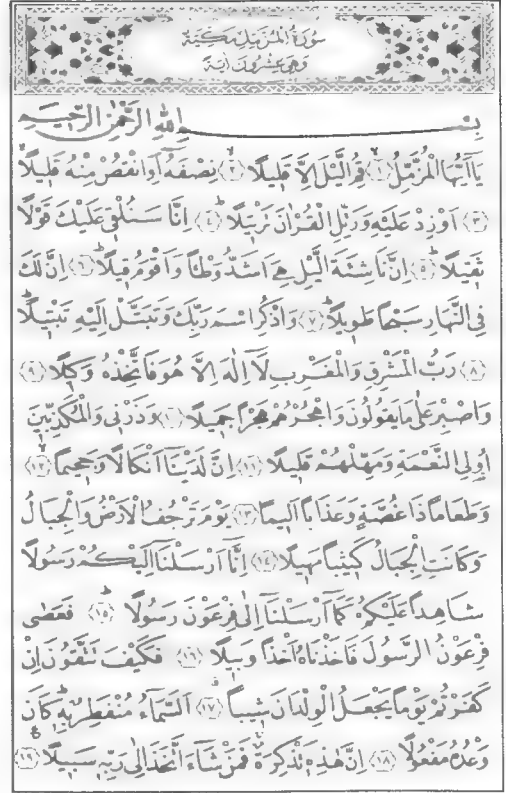 سُورَةُ الْمُزَّمِّلِ مَكِّيَّةٌ
وَهِيَ عِشْرُونَ اٰيَةً
بِسْمِ اللّٰهِ الرَّحْمٰنِ الرَّحِيمِ
يَٓا اَيُّهَا الْمُزَّمِّلُۙ ﴿١﴾ قُمِ الَّيْلَ اِلَّا قَلِيلًاۙ ﴿٢﴾ نِصْفَهُٓ اَوِ انْقُصْ مِنْهُ قَلِيلًاۙ
﴿٣﴾ اَوْ زِدْ عَلَيْهِ وَرَتِّلِ الْقُرْاٰنَ تَرْتِيلًاۜ ﴿٤﴾ اِنَّا سَنُلْقِي عَلَيْكَ قَوْلًا
ثَقِيلًاۜ ﴿٥﴾ اِنَّ نَاشِئَةَ الَّيْلِ هِيَ اَشَدُّ وَطْـًٔا وَاَقْوَمُ قِيلًاۜ ﴿٦﴾ اِنَّ لَكَ
فِي النَّهَارِ سَبْحًا طَوِيلًاۜ ﴿٧﴾ وَاذْكُرِ اسْمَ رَبِّكَ وَتَبَتَّلْ اِلَيْهِ تَبْتِيلًاۜ
﴿٨﴾ رَبُّ الْمَشْرِقِ وَالْمَغْرِبِ لَٓا اِلٰهَ اِلَّا هُوَ فَاتَّخِذْهُ وَكِيلًا ﴿٩﴾
وَاصْبِرْ عَلٰى مَا يَقُولُونَ وَاهْجُرْهُمْ هَجْرًا جَمِيلًا ﴿١٠﴾ وَذَرْنِي وَالْمُكَذِّبِينَ
اُولِي النَّعْمَةِ وَمَهِّلْهُمْ قَلِيلًا ﴿١١﴾ اِنَّ لَدَيْنَٓا اَنْكَالًا وَجَحِيمًاۙ ﴿١٢﴾
وَطَعَامًا ذَا غُصَّةٍ وَعَذَابًا اَلِيمًا ﴿١٣﴾ يَوْمَ تَرْجُفُ الْاَرْضُ وَالْجِبَالُ
وَكَانَتِ الْجِبَالُ كَثِيبًا مَهِيلًا ﴿١٤﴾ اِنَّٓا اَرْسَلْنَٓا اِلَيْكُمْ رَسُولًا
شَاهِدًا عَلَيْكُمْ كَمَٓا اَرْسَلْنَٓا اِلٰى فِرْعَوْنَ رَسُولًاۜ ﴿١٥﴾ فَعَصٰى
فِرْعَوْنُ الرَّسُولَ فَاَخَذْنَاهُ اَخْذًا وَبِيلًا ﴿١٦﴾ فَكَيْفَ تَتَّقُونَ اِنْ
كَفَرْتُمْ يَوْمًا يَجْعَلُ الْوِلْدَانَ شِيبًاۗ ﴿١٧﴾ اَلسَّمَٓاءُ مُنْفَطِرٌ بِهۜ كَانَ
وَعْدُهُ مَفْعُولًا ﴿١٨﴾ اِنَّ هٰذِهِ تَذْكِرَةٌۚ فَمَنْ شَٓاءَ اتَّخَذَ اِلٰى رَبِّهِ سَبِيلًا ﴿١٩﴾